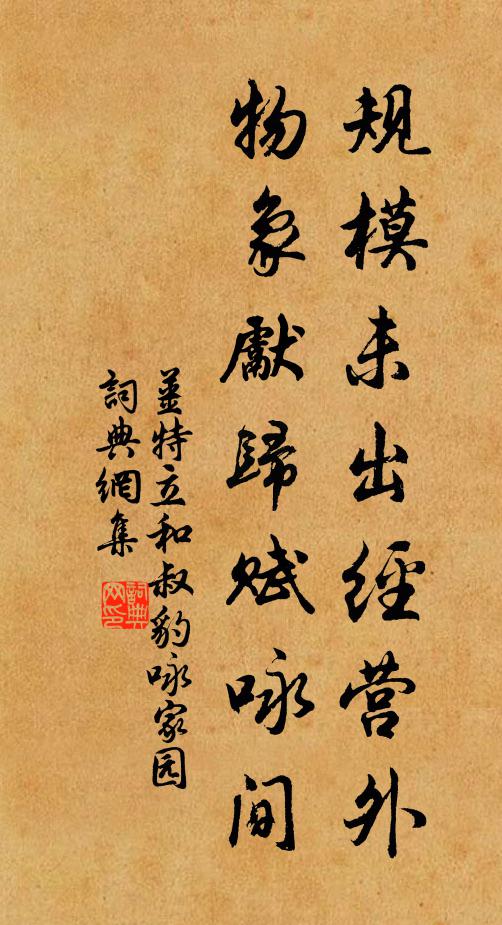 規模未出經营外
物象獻歸賦咏間
姜特立和叔豹咏家园
詞典網集
詞典网印